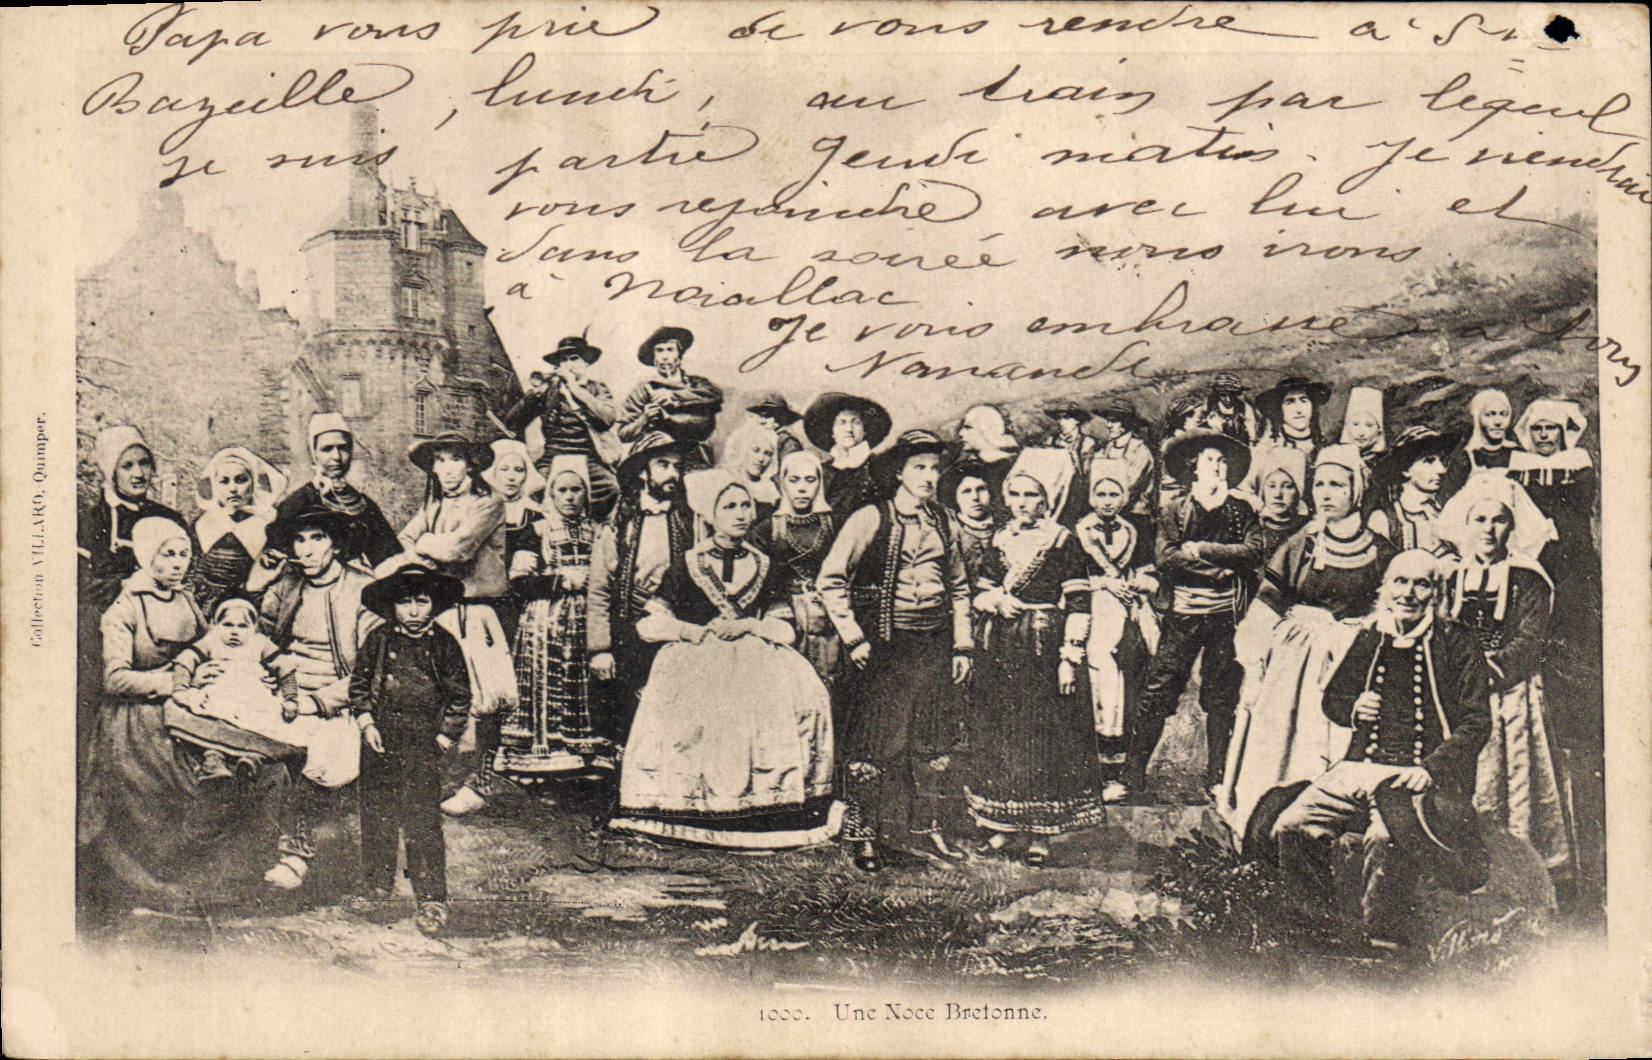 Papa vous prie de vous rendre à St
Bazeille, lundi, au train par lequel
je suis partie Jeudi matin. Je viendrai
vous rejoindre avec lui et
dans la soirée nous irons
à Noaillac.
Je vous embrasse à tous
Collection VILLARD, Quimper.
1000. Une Noce Bretonne.